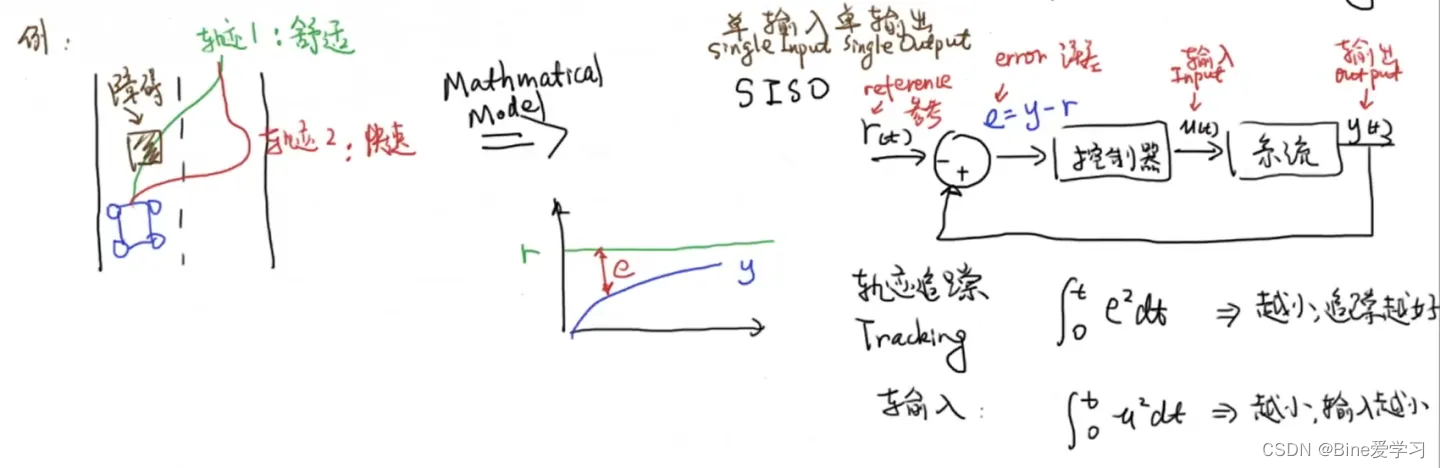 例：
轨迹1：舒适
障碍
轨迹2：快速
Mathmatical
Model
单输入单输出
Single Input Single Output
SISO
reference
参考
r(t)
error 误差
e=y-r
-
+
控制器
输入
Input
u(t)
系统
输出
output
y(t)
r
e
y
轨迹追踪
Tracking
∫₀ᵗ e²dt ⇒ 越小,追踪越好
输入：
∫₀ᵗ u²dt ⇒ 越小,输入越小
CSDN @Bine爱学习